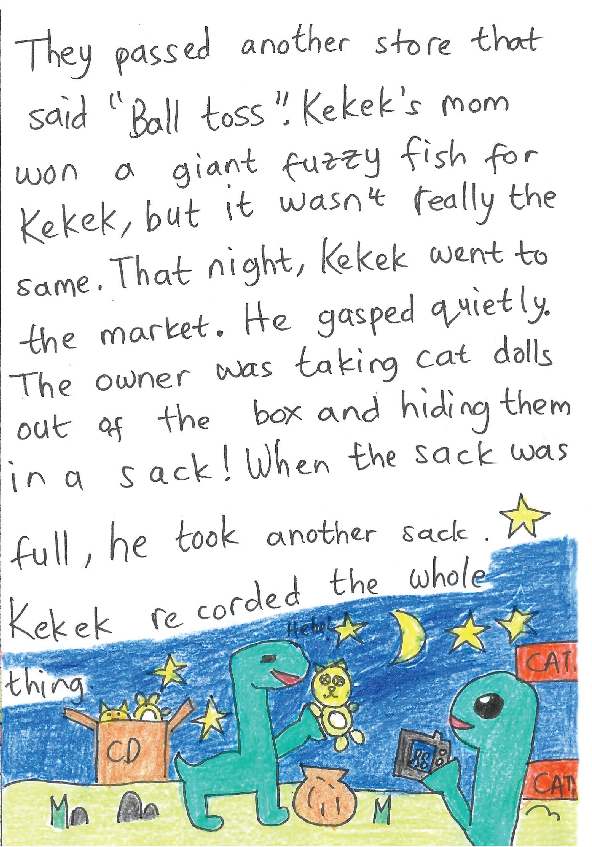 They passed another store that
said "Ball toss". Kekek's mom
won a giant fuzzy fish for
Kekek, but it wasn't really the
same. That night, Kekek went to
the market. He gasped quietly.
The owner was taking cat dolls
out of the box and hiding them
in a sack! When the sack was
full, he took another sack.
Kekek recorded the whole
thing.
CAT
CD
CAT